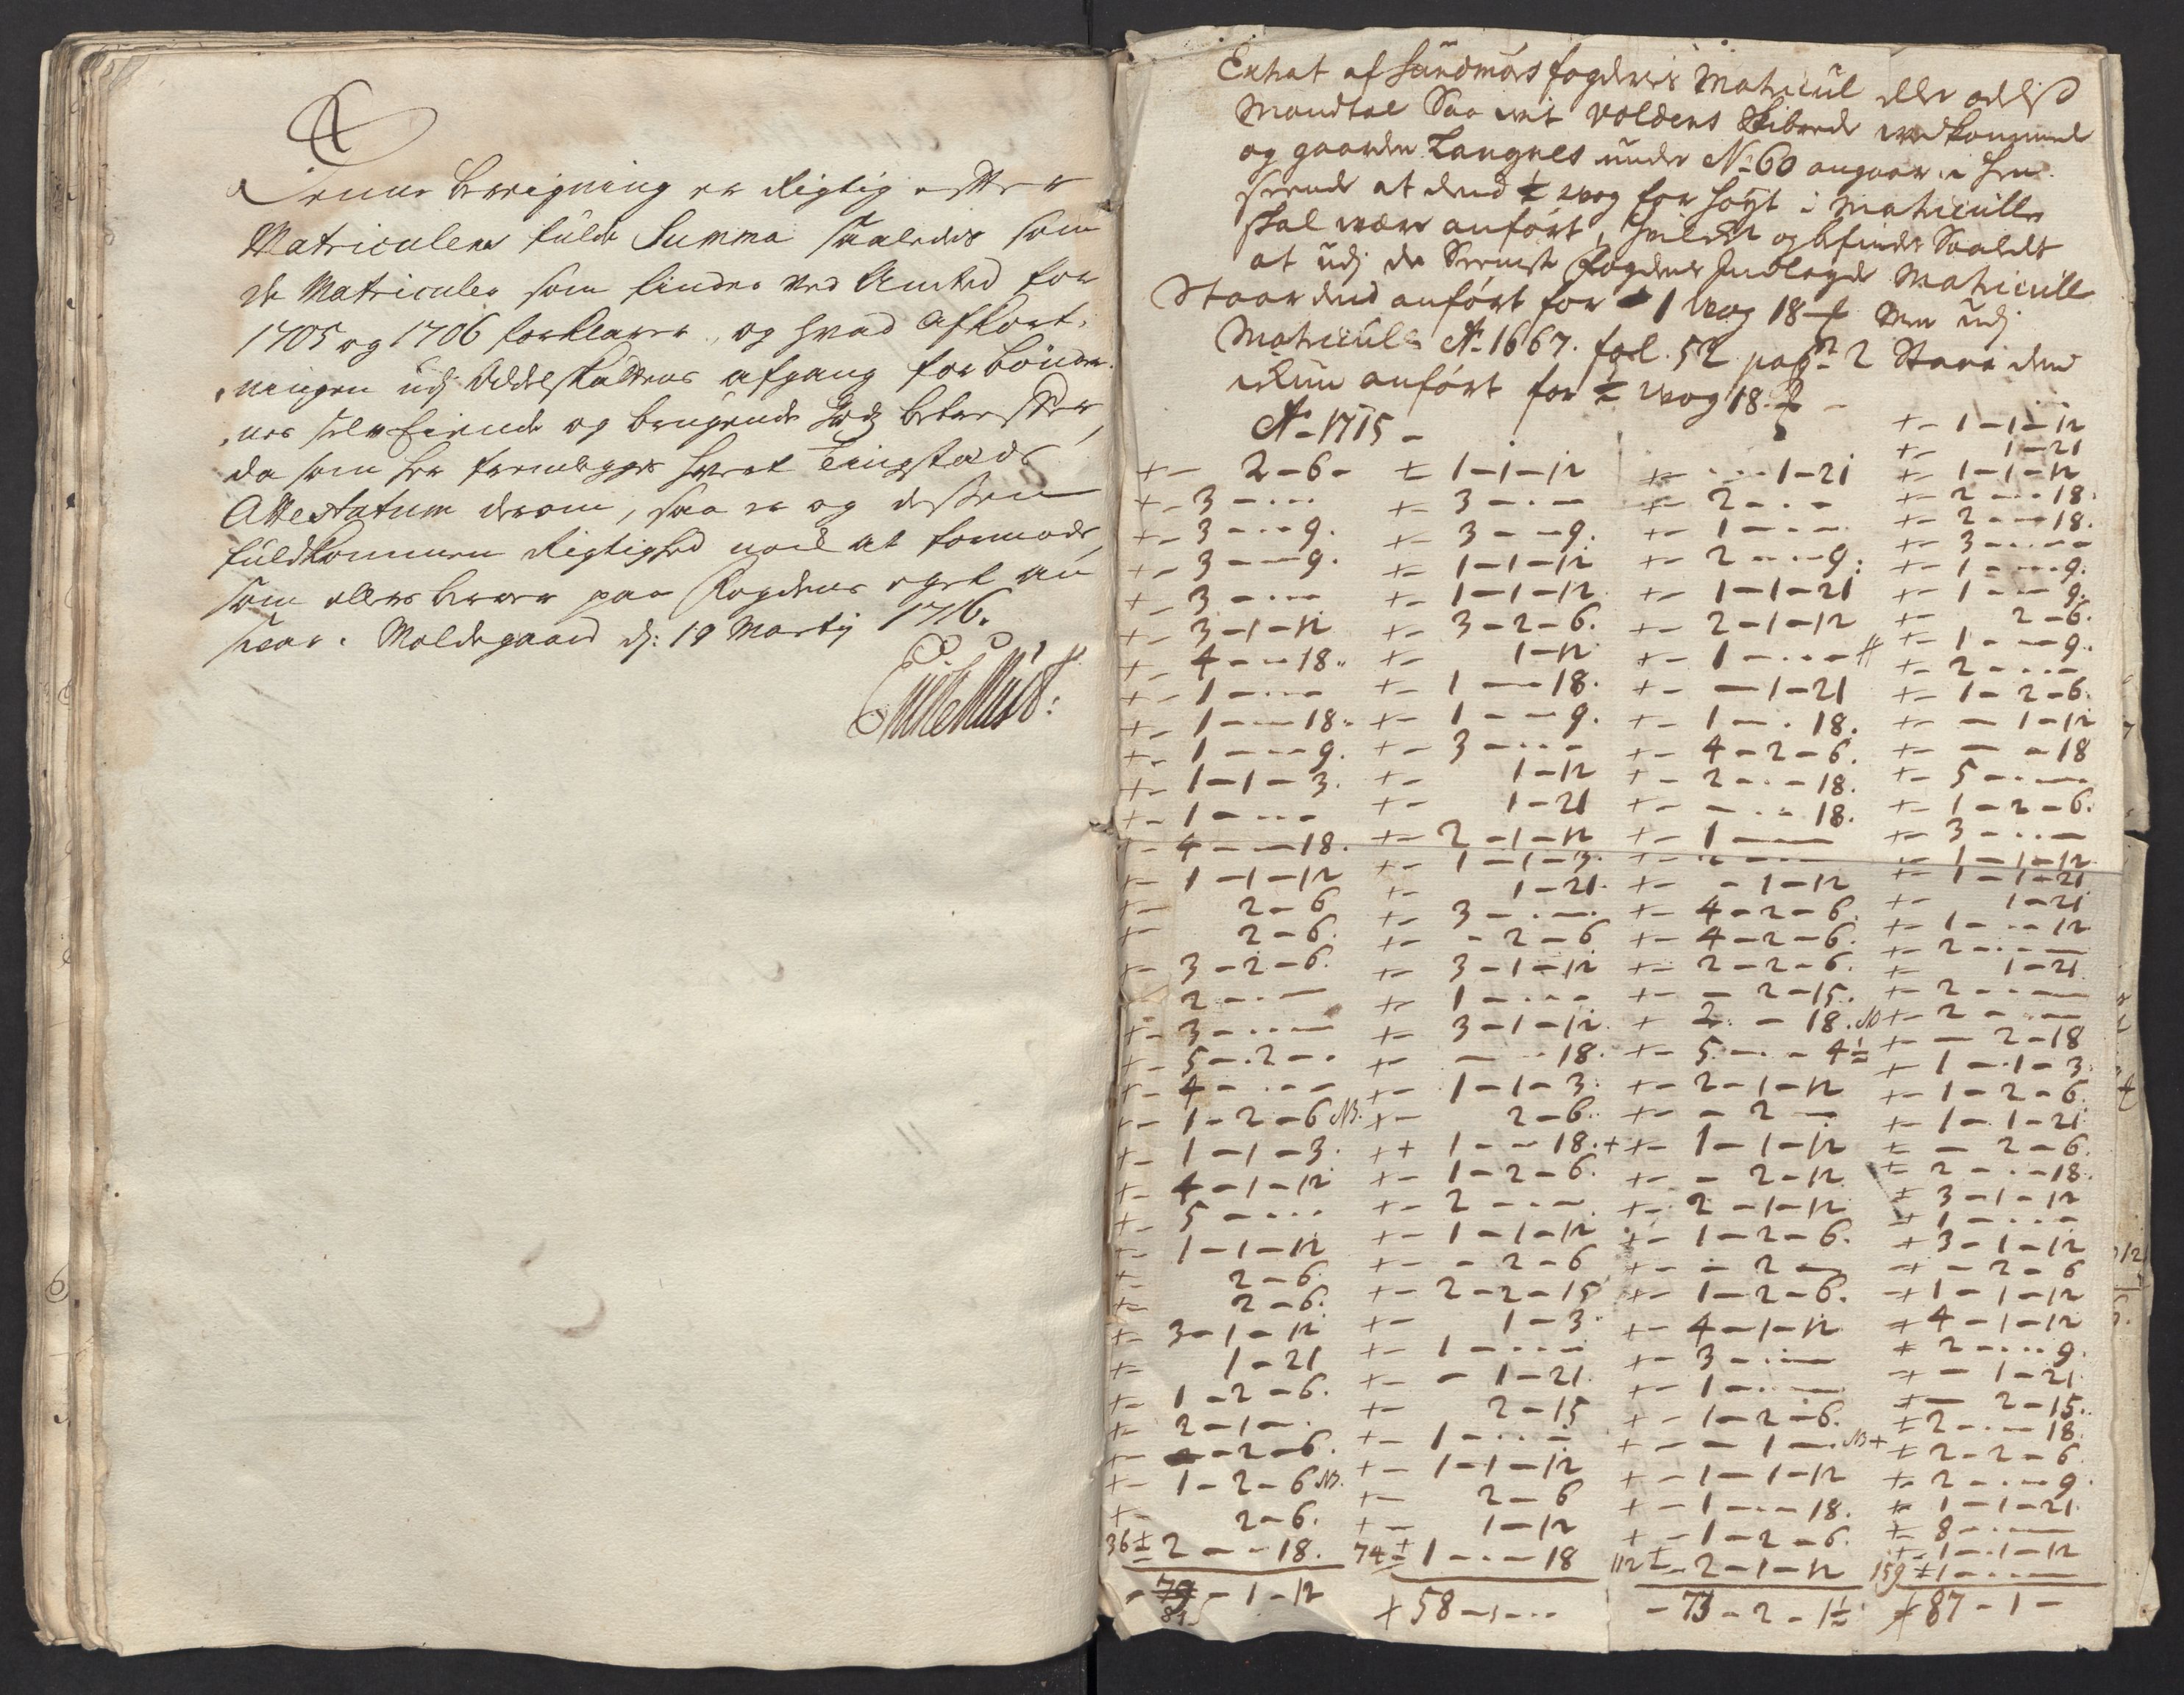 Denne beregning er Rigtig effter
Matriculens fulde Summa saaledis som
de Matriculer som findes ved Amted for
1705 og 1706 forklarer, og hvad afkort-
ningen udj Oddelskattens afgang for bønder-
nes selv Eiende og brugende Jord betreffer,
da som her fremlegges hvert Tingsteds
Attestatum derom, saa er og dessen
fuldkommen Rigtighed nock at formode,
som ellers beroer paa Fogdens eget an
svar. Moldegaard dj: 19 Martij 1716.
Extrat af Sundmørs fogderis Matricul eller odelss
Mandtal Saa vit Voldens Skibrede vedkommend
og gaarden Langnes under No 60 angaar i hen
seende at dend ½ wog for høyt i Matricullen
skal være anført, hvilket og befindes Saaledt
at udj de Seeniste fogdens Indlagde Matricull
Staar dend anført for 1 wog 18 men udj
Matricull Ao 1667. fol. 52 pag: 2 Staar dend
ickun anført for ½ wog 18.
Ao 1715
+- 2-6- +- 1-1-12 +- 1-21 +- 1-1-12
+- 1-21
+- 3 +- 3 +- 2 +- 1-1-12
+- 3 - 9. +- 3 - 9. +- 1 +- 2 - 18.
+- 3 - 9. +- 1-1-12 +- 2 - 9. +- 2 - 18.
+- 3 +- 1-1-12 +- 1-1-21 +- 3
+- 3-1-12 +- 3-2-6. +- 2-1-12 +- 1 - 9.
+- 4 - 18. +- 1-12 +- 1 +- 1 - 9.
+- 1 +- 1 - 18. +- 1-21 +- 2-6.
+- 1 - 18. +- 1 - 9. +- 1 - 18. +- 1 - 9.
+- 1 - 9. +- 3 +- 4-2-6. +- 2
+- 1-1-3. +- 1-12 +- 2 - 18. +- 1-2-6.
+- 1 +- 1-21 +- 18. +- 1-12
+- 4 - 18. +- 2-1-12 +- 1 +- 18
+- 1-1-12 +- 1-1-3. +- 2 +- 5
+- 2-6 +- 1-21. +- 1-12 +- 1-2-6.
+- 2-6. +- 3 +- 4-2-6. +- 3
+- 3-2-6. +- 2-6 +- 4-2-6. +- 1-1-12
2 +- 3-1-12 +- 2-2-6. +- 1-1-21
+- 3 +- 1 +- 2-15. +- 1-21
+- 5-2 +- 3-1-12. + 2 - 18. NB +- 1 - 12
+- 4 +- 18. +- 5 - 4½ +- 2
+- 1-2-6 NB. +- 1-1-3. +- 2-1-12 +- 1-21
+- 1-1-3. +- 2-6. +- 2 +- 2
+- 4-1-12 ++ 1 - 18. ++- 1-1-12 +- 2
+- 5 +- 1-2-6. +- 2-12. +- 2-18
+- 1-1-12 +- 2 +- 2-1-12 +- 1-1-3.
+- 2-6. +- 1-1-12 +- 1-2-6. +- 1-2-6.
+- 2-6. +- 2-6 +- 2 +- 1-1-21
+- 3-1-12 +- 2-2-15 +- 1-2-6. +- 2-6.
+- 1-21 +- 1-3. +- 4-1-12 +- 2 - 18.
+- 1-2-6. +- 1 +- 3 +- 3-1-12
+- 2-1 +- 1-21. +- 1 +- 1
+- 2-6. +- 2-15 +- 1-2-6. + 3-1-12
+- 1-2-6 NB. +- 1 +- 1 NB + -+ 2-6
+- 2-6. +- 1-1-12 +- 1-1-12 -+ 1-1-12
36 +- 2 - 18. +- 2-6 +- 1 - 18. + 4-1-12
+- 1-12 +- 1-2-6. + 2 - 9.
74 +- 1 - 18 112 +- 2-1-12 -+ 1-21
+- 2-15.
+- 2 - 18.
+- 2-2-6
+- 2 - 9.
+- 1-1-21.
+- 8
+- 1-1-12
159 +- 1
79 - 1-12 + 58 - 73-2-1½ + 87-1
81